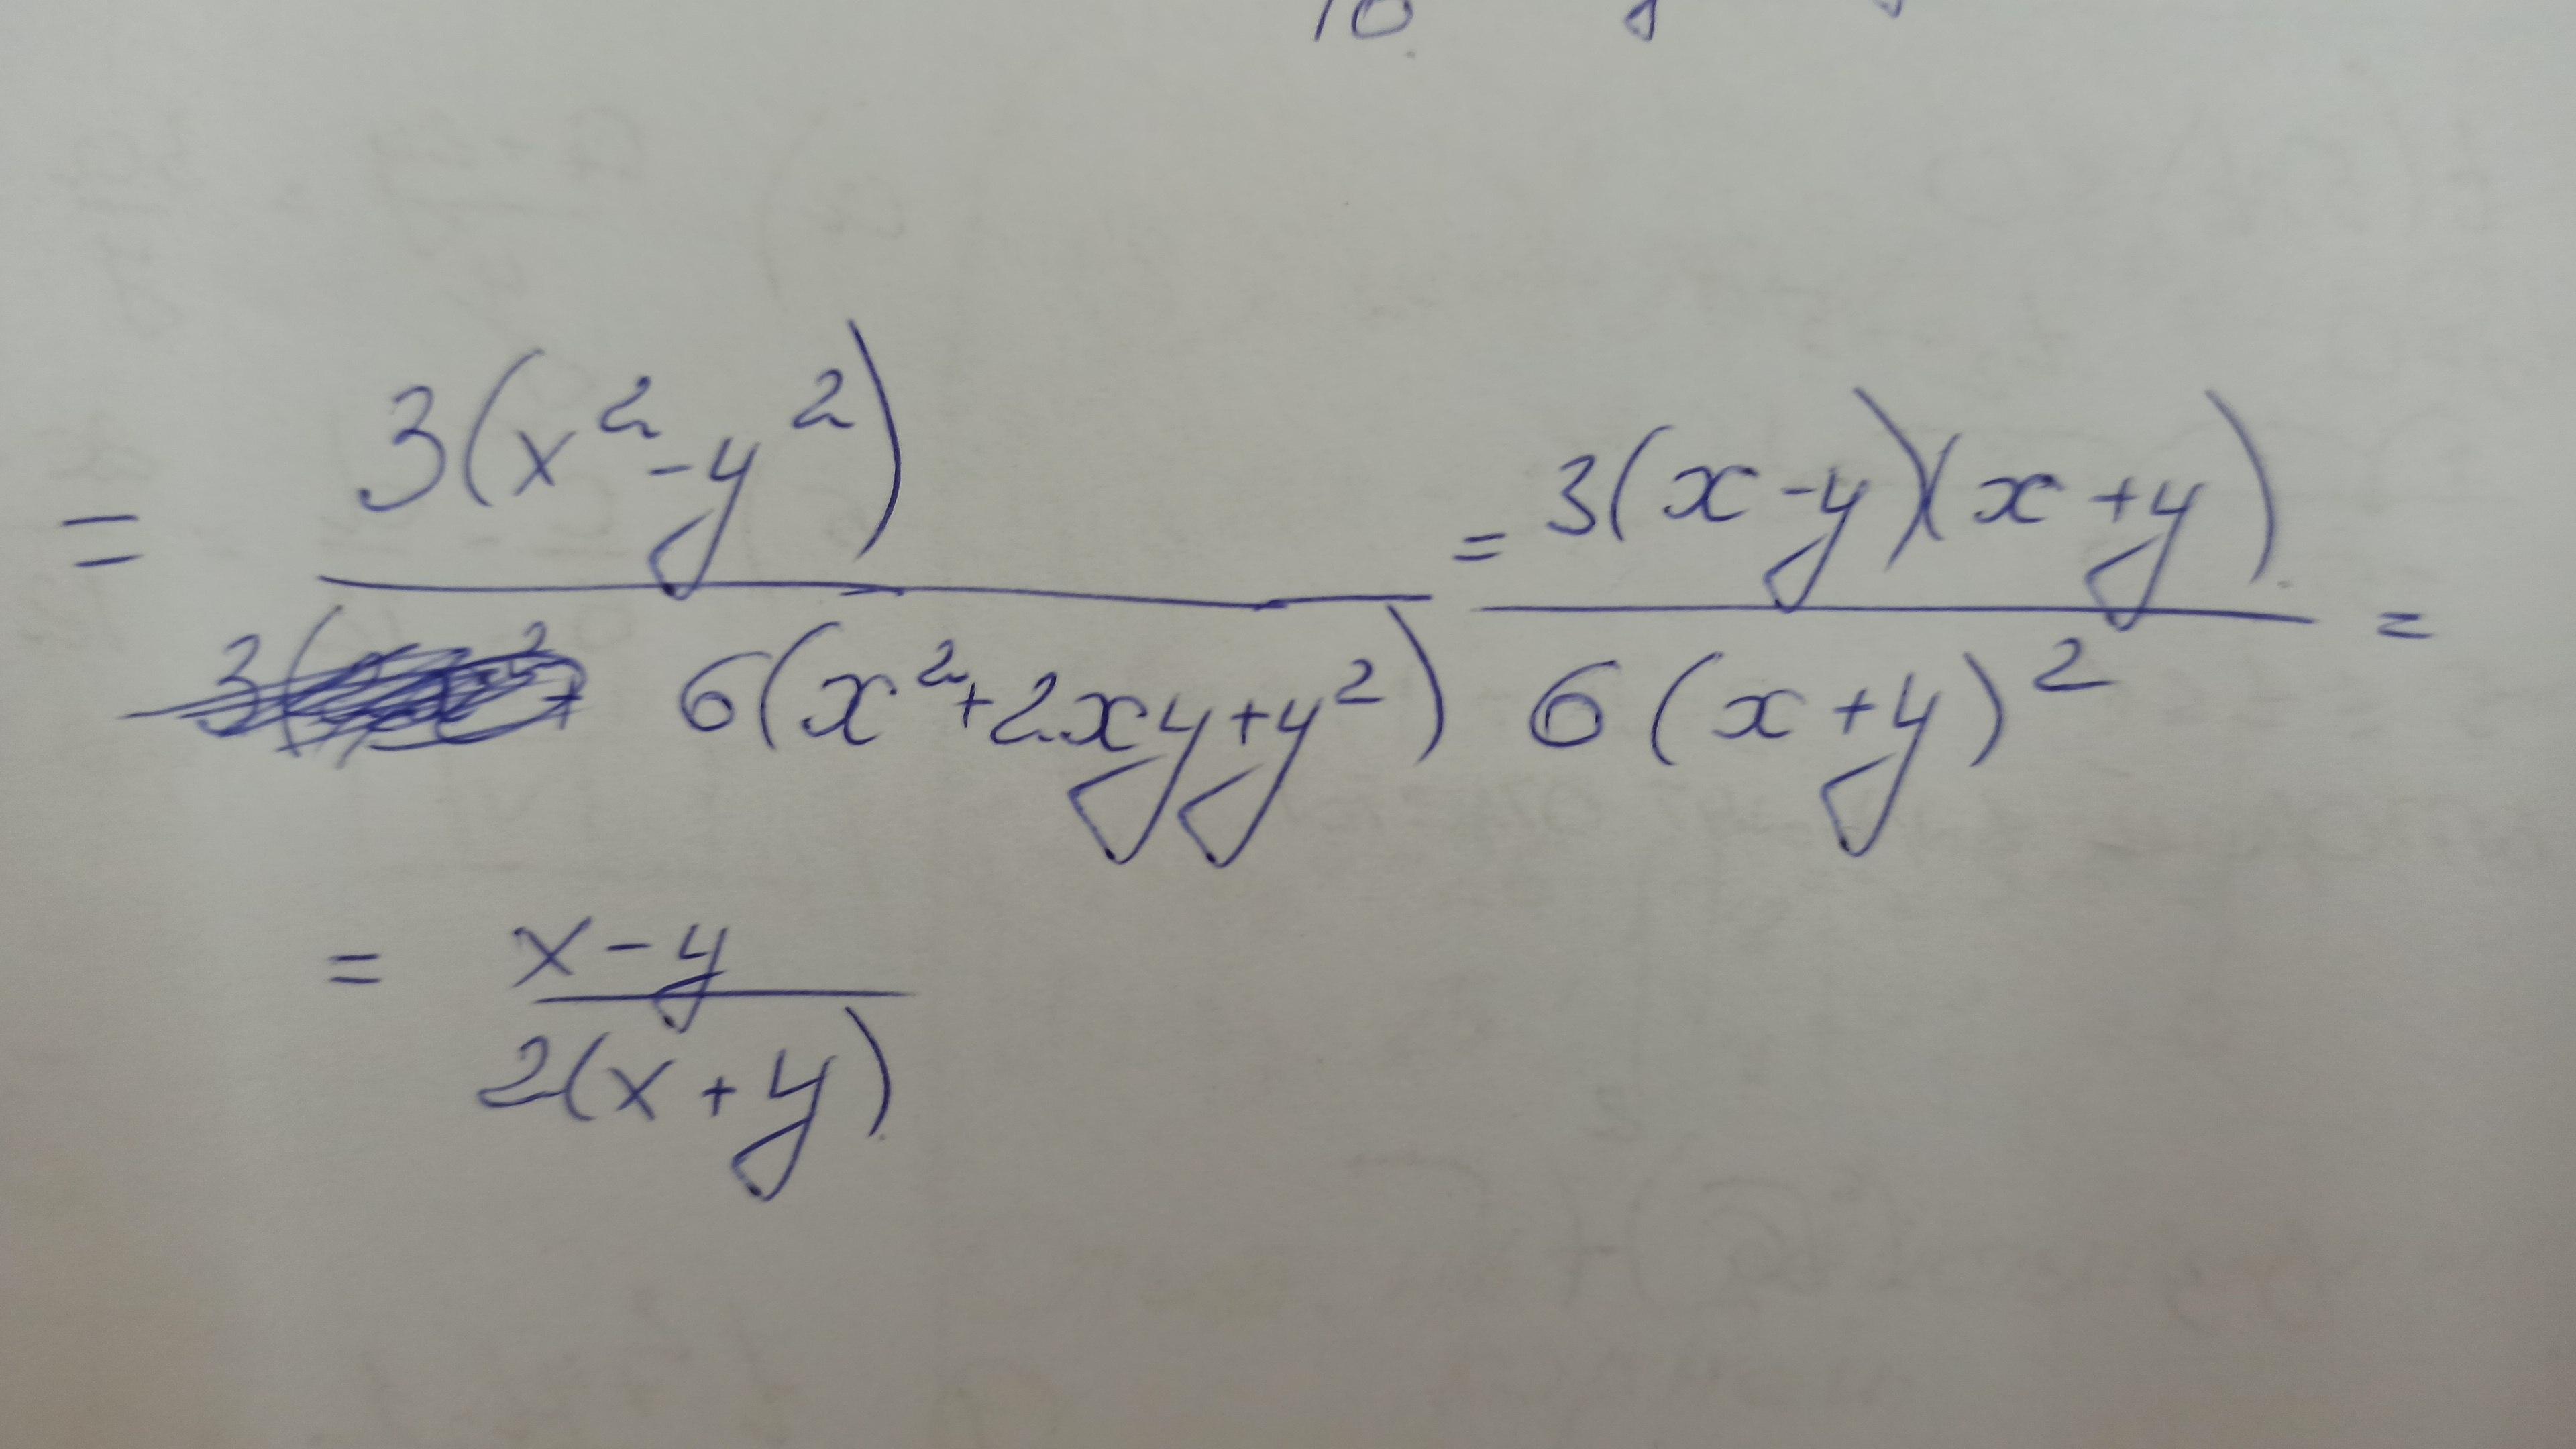 = 3(x²-y²) / 6(x²+2xy+y²) = 3(x-y)(x+y) / 6(x+y)² =
= x-y / 2(x+y)